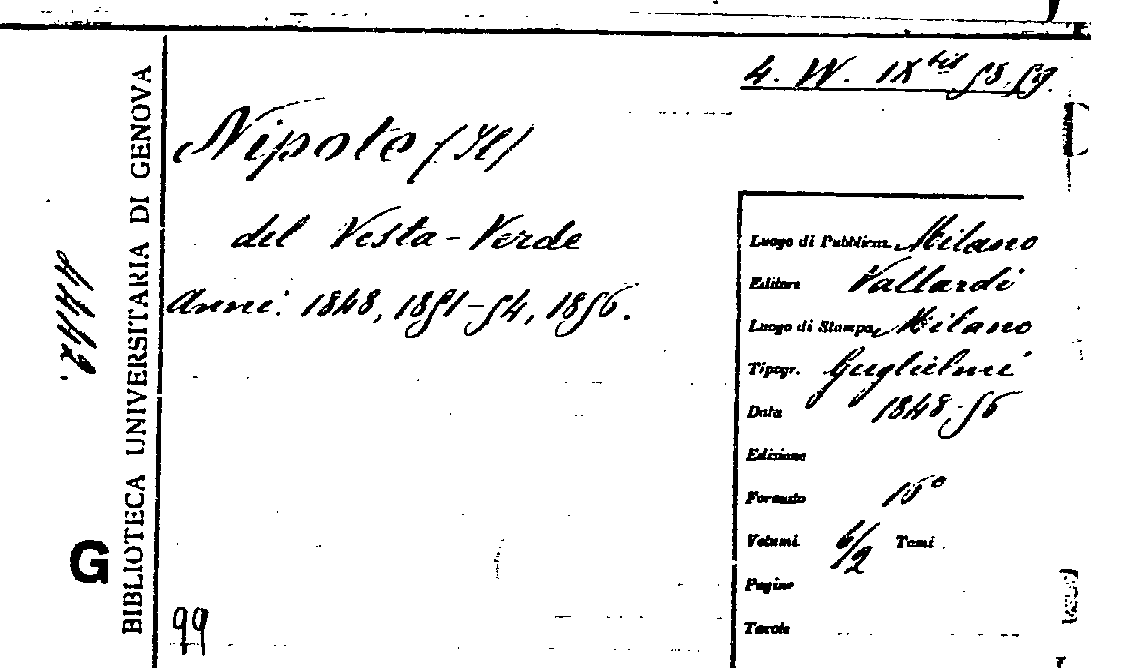 4. W. IX bis 58.59.
Nipote (Il)
del Vesta-Verde
Anni: 1848, 1851-54, 1856.
4442.
BIBLIOTECA UNIVERSITARIA DI GENOVA
G
99
Luogo di Pubblicaz. Milano
Editore Vallardi
Luogo di Stampa Milano
Tipogr. Guglielmi
Data 1848-56
Edizione
Formato 16°
Volumi 6/2 Tomi
Pagine
Tavole